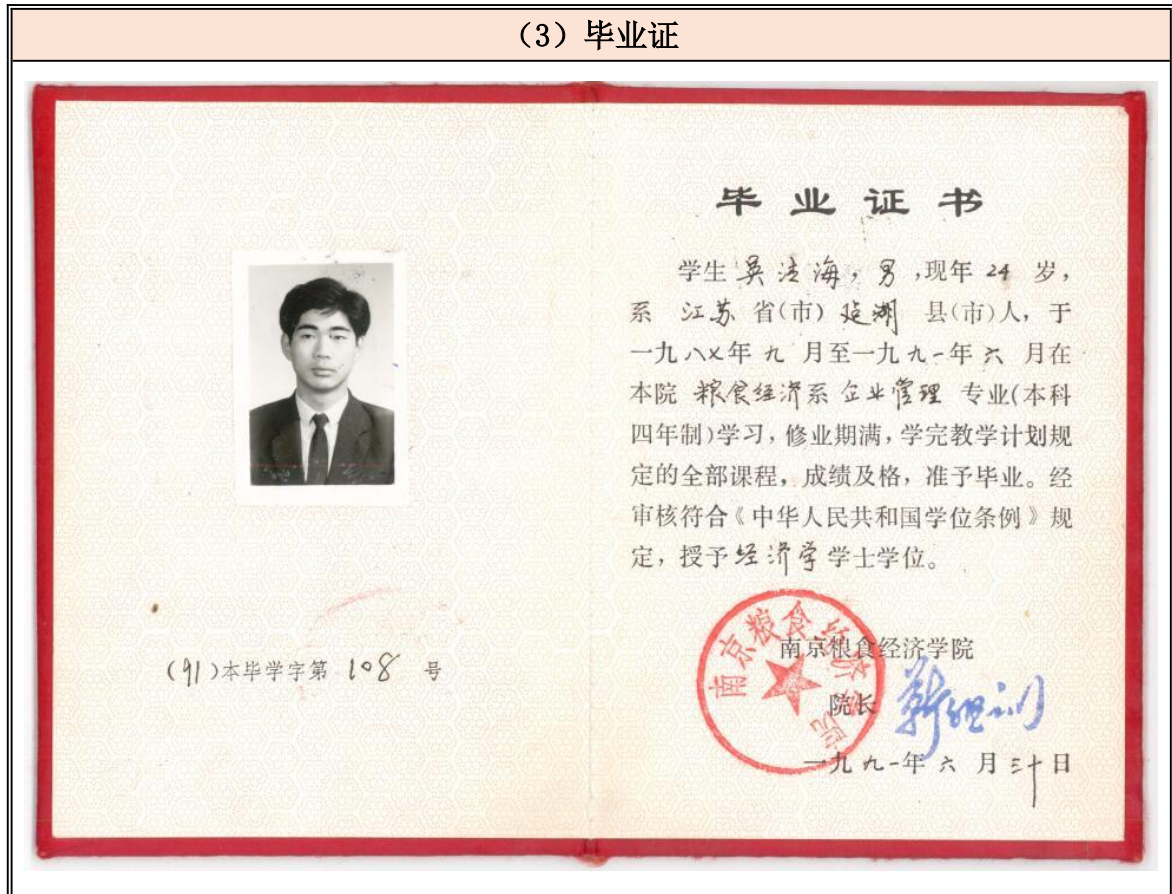 （3）毕业证
毕业证书
学生 吴洁海，男，现年 24 岁，
系 江苏 省(市) 湖 县(市)人，于
一九八七年 九 月至一九九一年 六 月在
本院 粮食经济系 企业管理 专业(本科
四年制)学习，修业期满，学完教学计划规
定的全部课程，成绩及格，准予毕业。经
审核符合《中华人民共和国学位条例》规
定，授予经济学学士学位。
南京粮食经济学院
南京粮食经济学院
院长
一九九一年 六 月三十日
(91)本毕学字第 108 号